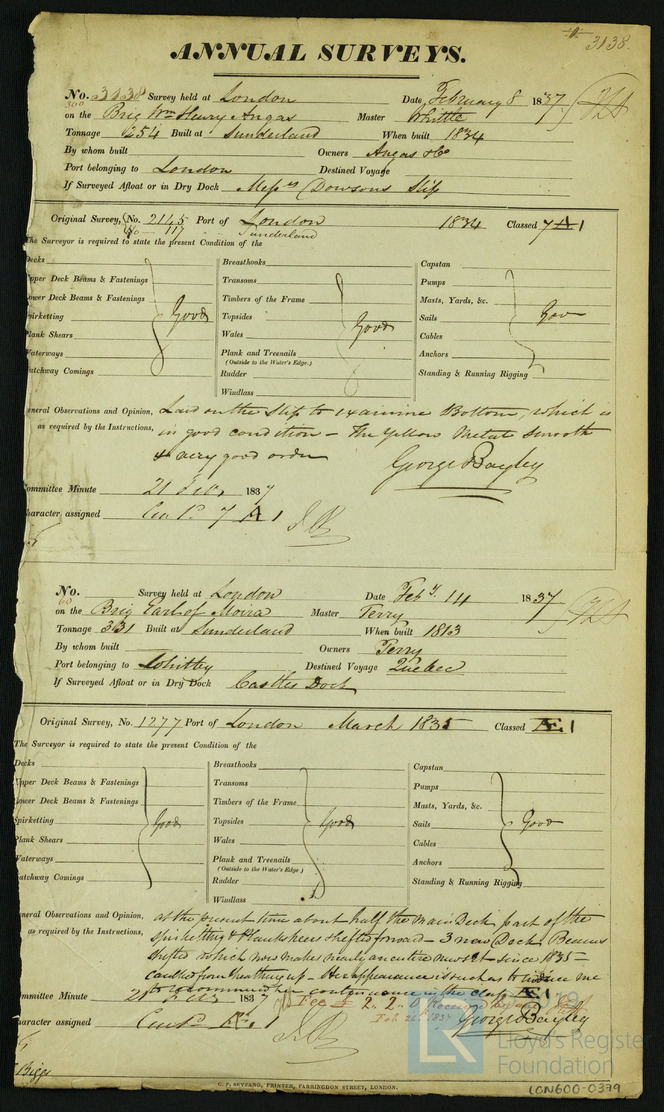 3138.
ANNUAL SURVEYS.
No. 3138 Survey held at London Date February 8 1837
300
on the Brig Wm Henry Angas Master Whittle
Tonnage 254 Built at Sunderland When built 1834
By whom built Owners Angas & Co
Port belonging to London Destined Voyage
If Surveyed Afloat or in Dry Dock Messrs Dowsons Slip
Original Survey, No. 2145 Port of London 1834 Classed 7 A 1
No 117 Sunderland
The Surveyor is required to state the present Condition of the
Decks
Upper Deck Beams & Fastenings
Lower Deck Beams & Fastenings
Spirketting Good
Plank Shears
Waterways
Hatchway Comings
Breasthooks
Transoms
Timbers of the Frame
Topsides Good
Wales
Plank and Treenails
(Outside to the Water's Edge.)
Rudder
Windlass
Capstan
Pumps
Masts, Yards, &c.
Sails Good
Cables
Anchors
Standing & Running Rigging
General Observations and Opinion, Laid on the Slip to examine Bottom, which is
as required by the Instructions, in good condition – The Yellow Metal smooth
& very good order George Bayley
Committee Minute 21 Feby 1837
Character assigned Contd 7 A 1
No. Survey held at London Date Feby 14 1837
60
on the Brig Earl of Moira Master Terry
Tonnage 331 Built at Sunderland When built 1813
By whom built Owners Terry
Port belonging to Whitby Destined Voyage Quebec
If Surveyed Afloat or in Dry Dock Castles Dock
Original Survey, No. 1277 Port of London March 1835 Classed Æ 1
The Surveyor is required to state the present Condition of the
Decks
Upper Deck Beams & Fastenings
Lower Deck Beams & Fastenings
Spirketting Good
Plank Shears
Waterways
Hatchway Comings
Breasthooks
Transoms
Timbers of the Frame
Topsides Good
Wales
Plank and Treenails
(Outside to the Water's Edge.)
Rudder
Windlass
Capstan
Pumps
Masts, Yards, &c.
Sails Good
Cables
Anchors
Standing & Running Rigging
General Observations and Opinion, at the present time about half the main Deck, part of the
as required by the Instructions, spirketting & Planksheers shifted forward – 3 new Deck Beams
shifted which now makes nearly an entire new set since 1835 –
caulked from Wales up – Her appearance is such as to induce me
to recommend her continuance in the class Æ 1
Committee Minute 21 Feb 1837 Fee £ 2. 2. 0 Received
Feb 1837 George Bayley
Character assigned Contd Æ 1
Biggs
Lloyd's Register
Foundation
C. F. SEYFANG, PRINTER, FARRINGDON STREET, LONDON.
LON600-0379